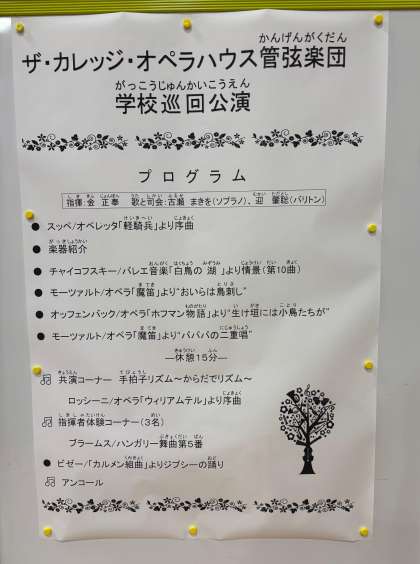 ザ・カレッジ・オペラハウス管弦楽団
学校巡回公演
プログラム
指揮:金 正奉 歌と司会:古瀬 まきを(ソプラノ)、迎 肇聡(バリトン)
● スッペ/オペレッタ「軽騎兵」より序曲
● 楽器紹介
● チャイコフスキー/バレエ音楽「白鳥の 湖 」より情景(第10曲)
● モーツァルト/オペラ「魔笛」より“おいらは鳥刺し”
● オッフェンバック/オペラ「ホフマン物語」より“生け垣には小鳥たちが”
● モーツァルト/オペラ「魔笛」より“パパパの二重唱”
―休憩15分―
共演コーナー 手拍子リズム～からだでリズム～
ロッシーニ/オペラ「ウィリアムテル」より序曲
指揮者体験コーナー(3名)
ブラームス/ハンガリー舞曲第5番
● ビゼー/「カルメン組曲」よりジプシーの踊り
アンコール